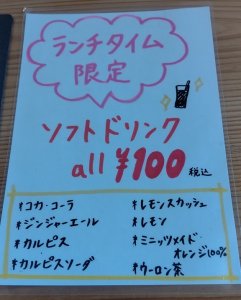 ランチタイム
限定
ソフトドリンク
all ¥100 税込
*コカ・コーラ
*ジンジャーエール
*カルピス
*カルピスソーダ
*レモンスカッシュ
*レモン
*ミニッツメイド
オレンジ100%
*ウーロン茶